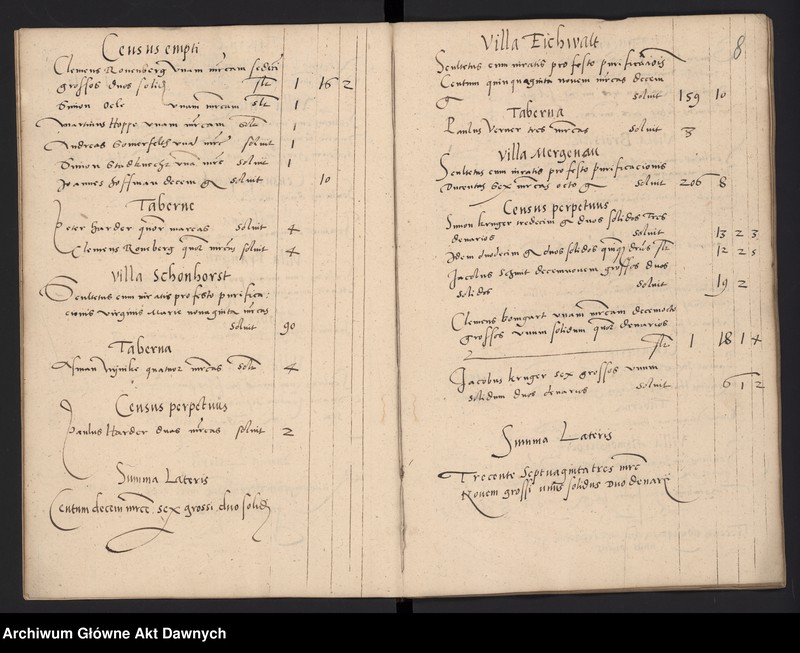 Census empti
Clemens Ronenberg unam mrcam sedeci
grossos duos solid slt 1 16 2
Simon Oelr unam mrcam slt 1
Martinus Hoppe unam mrcam solt 1
Andreas Somerfelth una mrc soluit 1
Simon Stadknecht una mrc soluit 1
Joannes Hoffman decem g soluit 10
Taberne
Peter Harder quor marcas soluit 4
Clemens Roneberg quor mrcas soluit 4
Villa Schonhorst
Scultetus cum iuratis pro festo purifica:
cionis virginis Marie nonaginta mrcas
soluit 90
Taberna
Asman quatuor mrcas solt 4
Census perpetuus
Paulus Harder duas mrcas soluit 2
Summa Lateris
Centum decem mrce sex grossi duo solid
8
Villa Eichwalt
Scultetus cum iuratis pro festo purificacionis
Centum quinquaginta novem mrcas decem
g soluit 159 10
Taberna
Paulus Verner tres mrcas soluit 3
Villa Mergenau
Scultetus cum iuratis pro festo purificacionis
Ducentas sex mrcas octo g soluit 206 8
Census perpetuus
Simon Kruger tredecim g duos solidos Tres
denarios soluit 13 2 3
Idem duodecim g duos solidos quinq drios slt 12 2 5
Jacobus decemnouem grossos duos
solidos soluit 19 2
Clemens bomgart unam mrcam decemocto
grossos unum solidum quor denarios
slt 1 18 1 4
Jacobus Kruger sex grossos unum
solidum duos denarios soluit 6 1 2
Summa Lateris
Trecente Septuaginta tres mrce
Novem grossi unus solidus duo denarii
Archiwum Główne Akt Dawnych